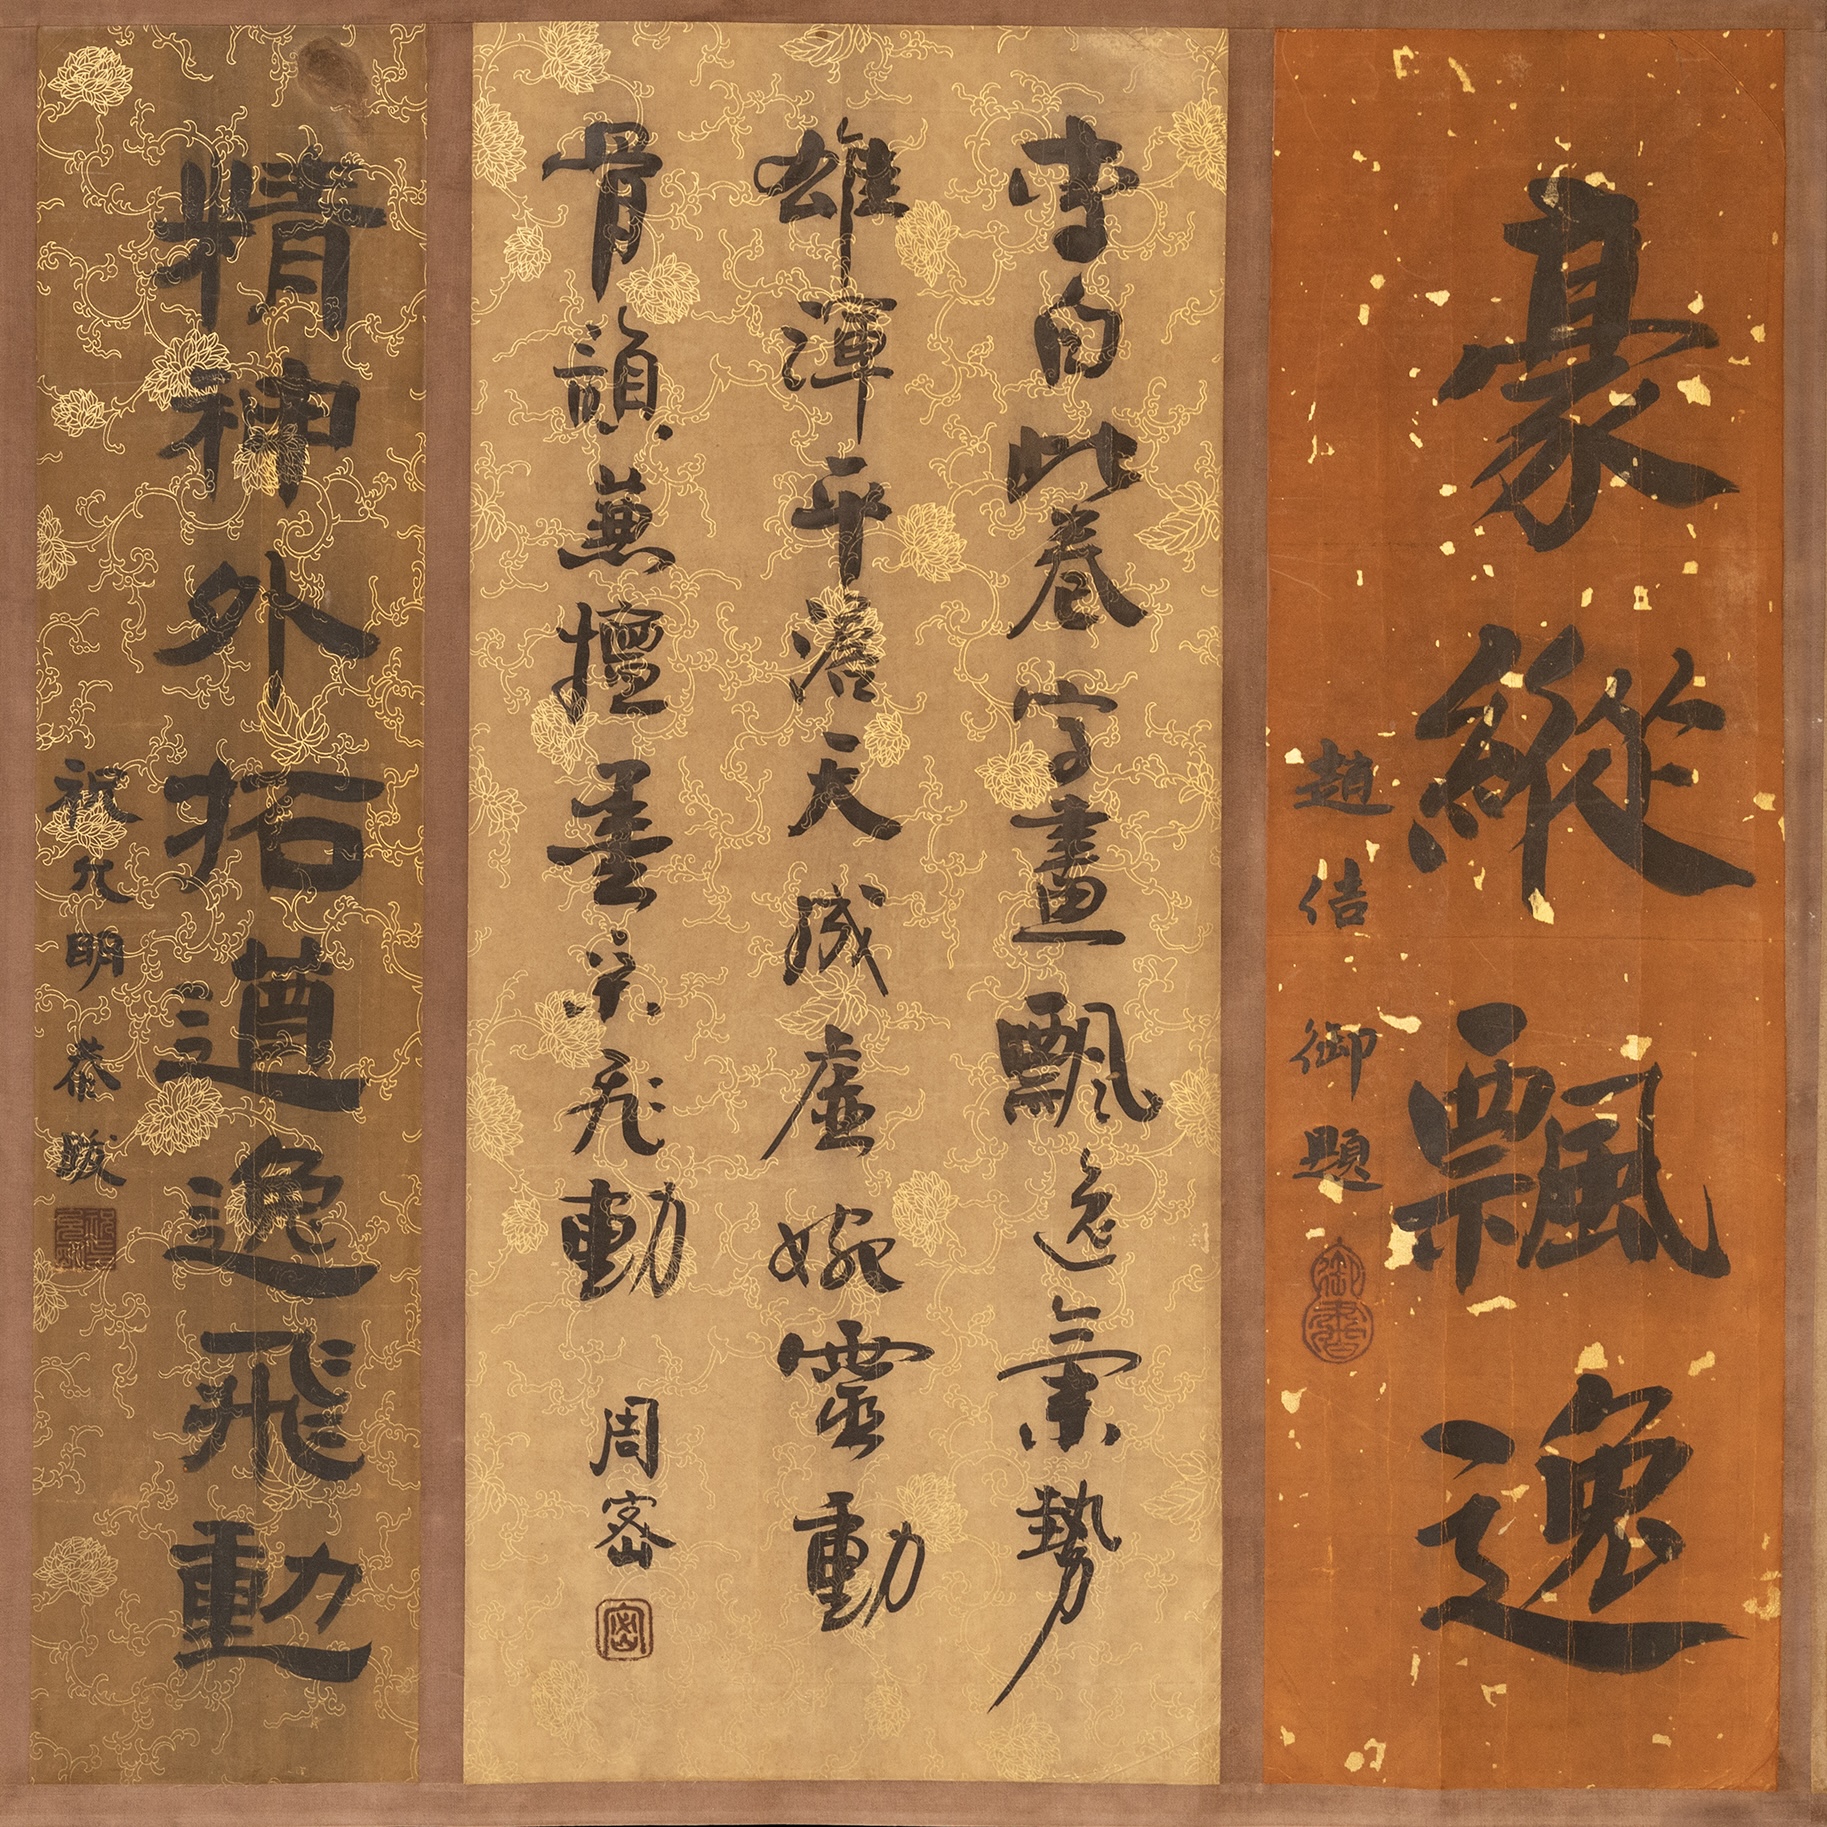 豪縱飄逸
趙佶御題
御書
李白此卷字畫飄逸氣勢
雄渾平澹天成虛婉靈動
骨韻兼擅墨飛動
周密
密
精神外拓遒逸飛動
祝允明恭跋